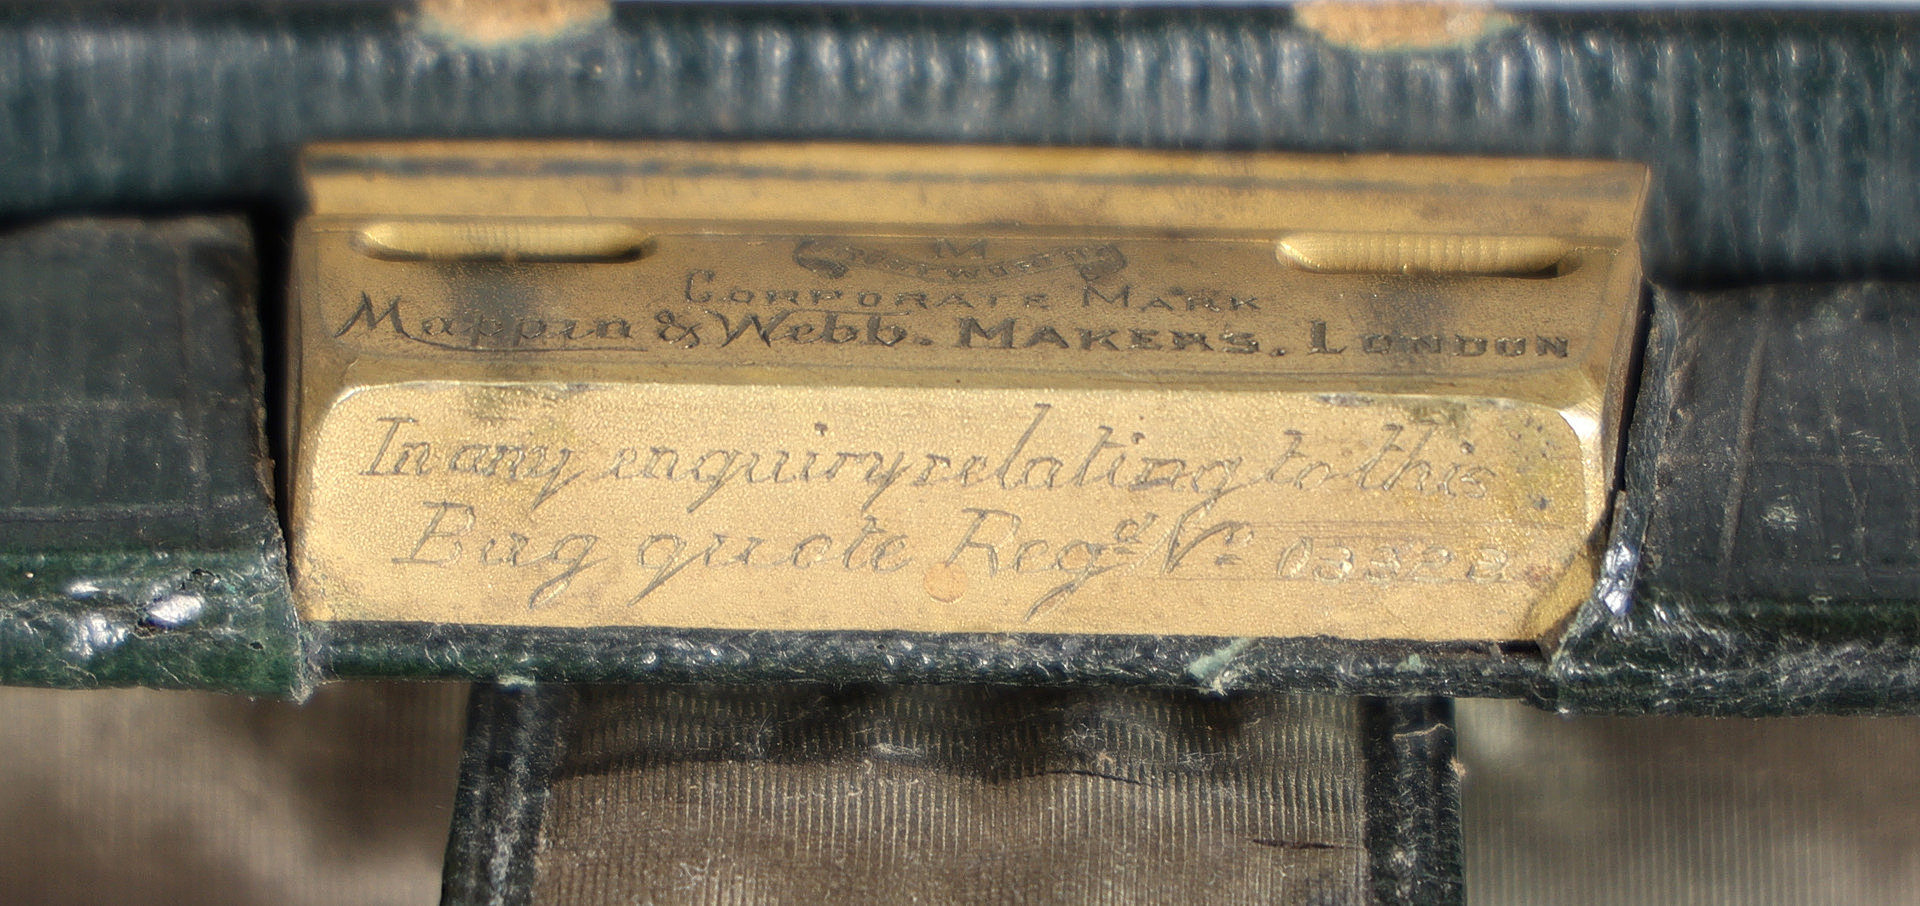 M
TRUSTWORTHY
CORPORATE MARK
Mappin & Webb. MAKERS. LONDON
In any enquiry relating to this
Bag quote Regd No 03322